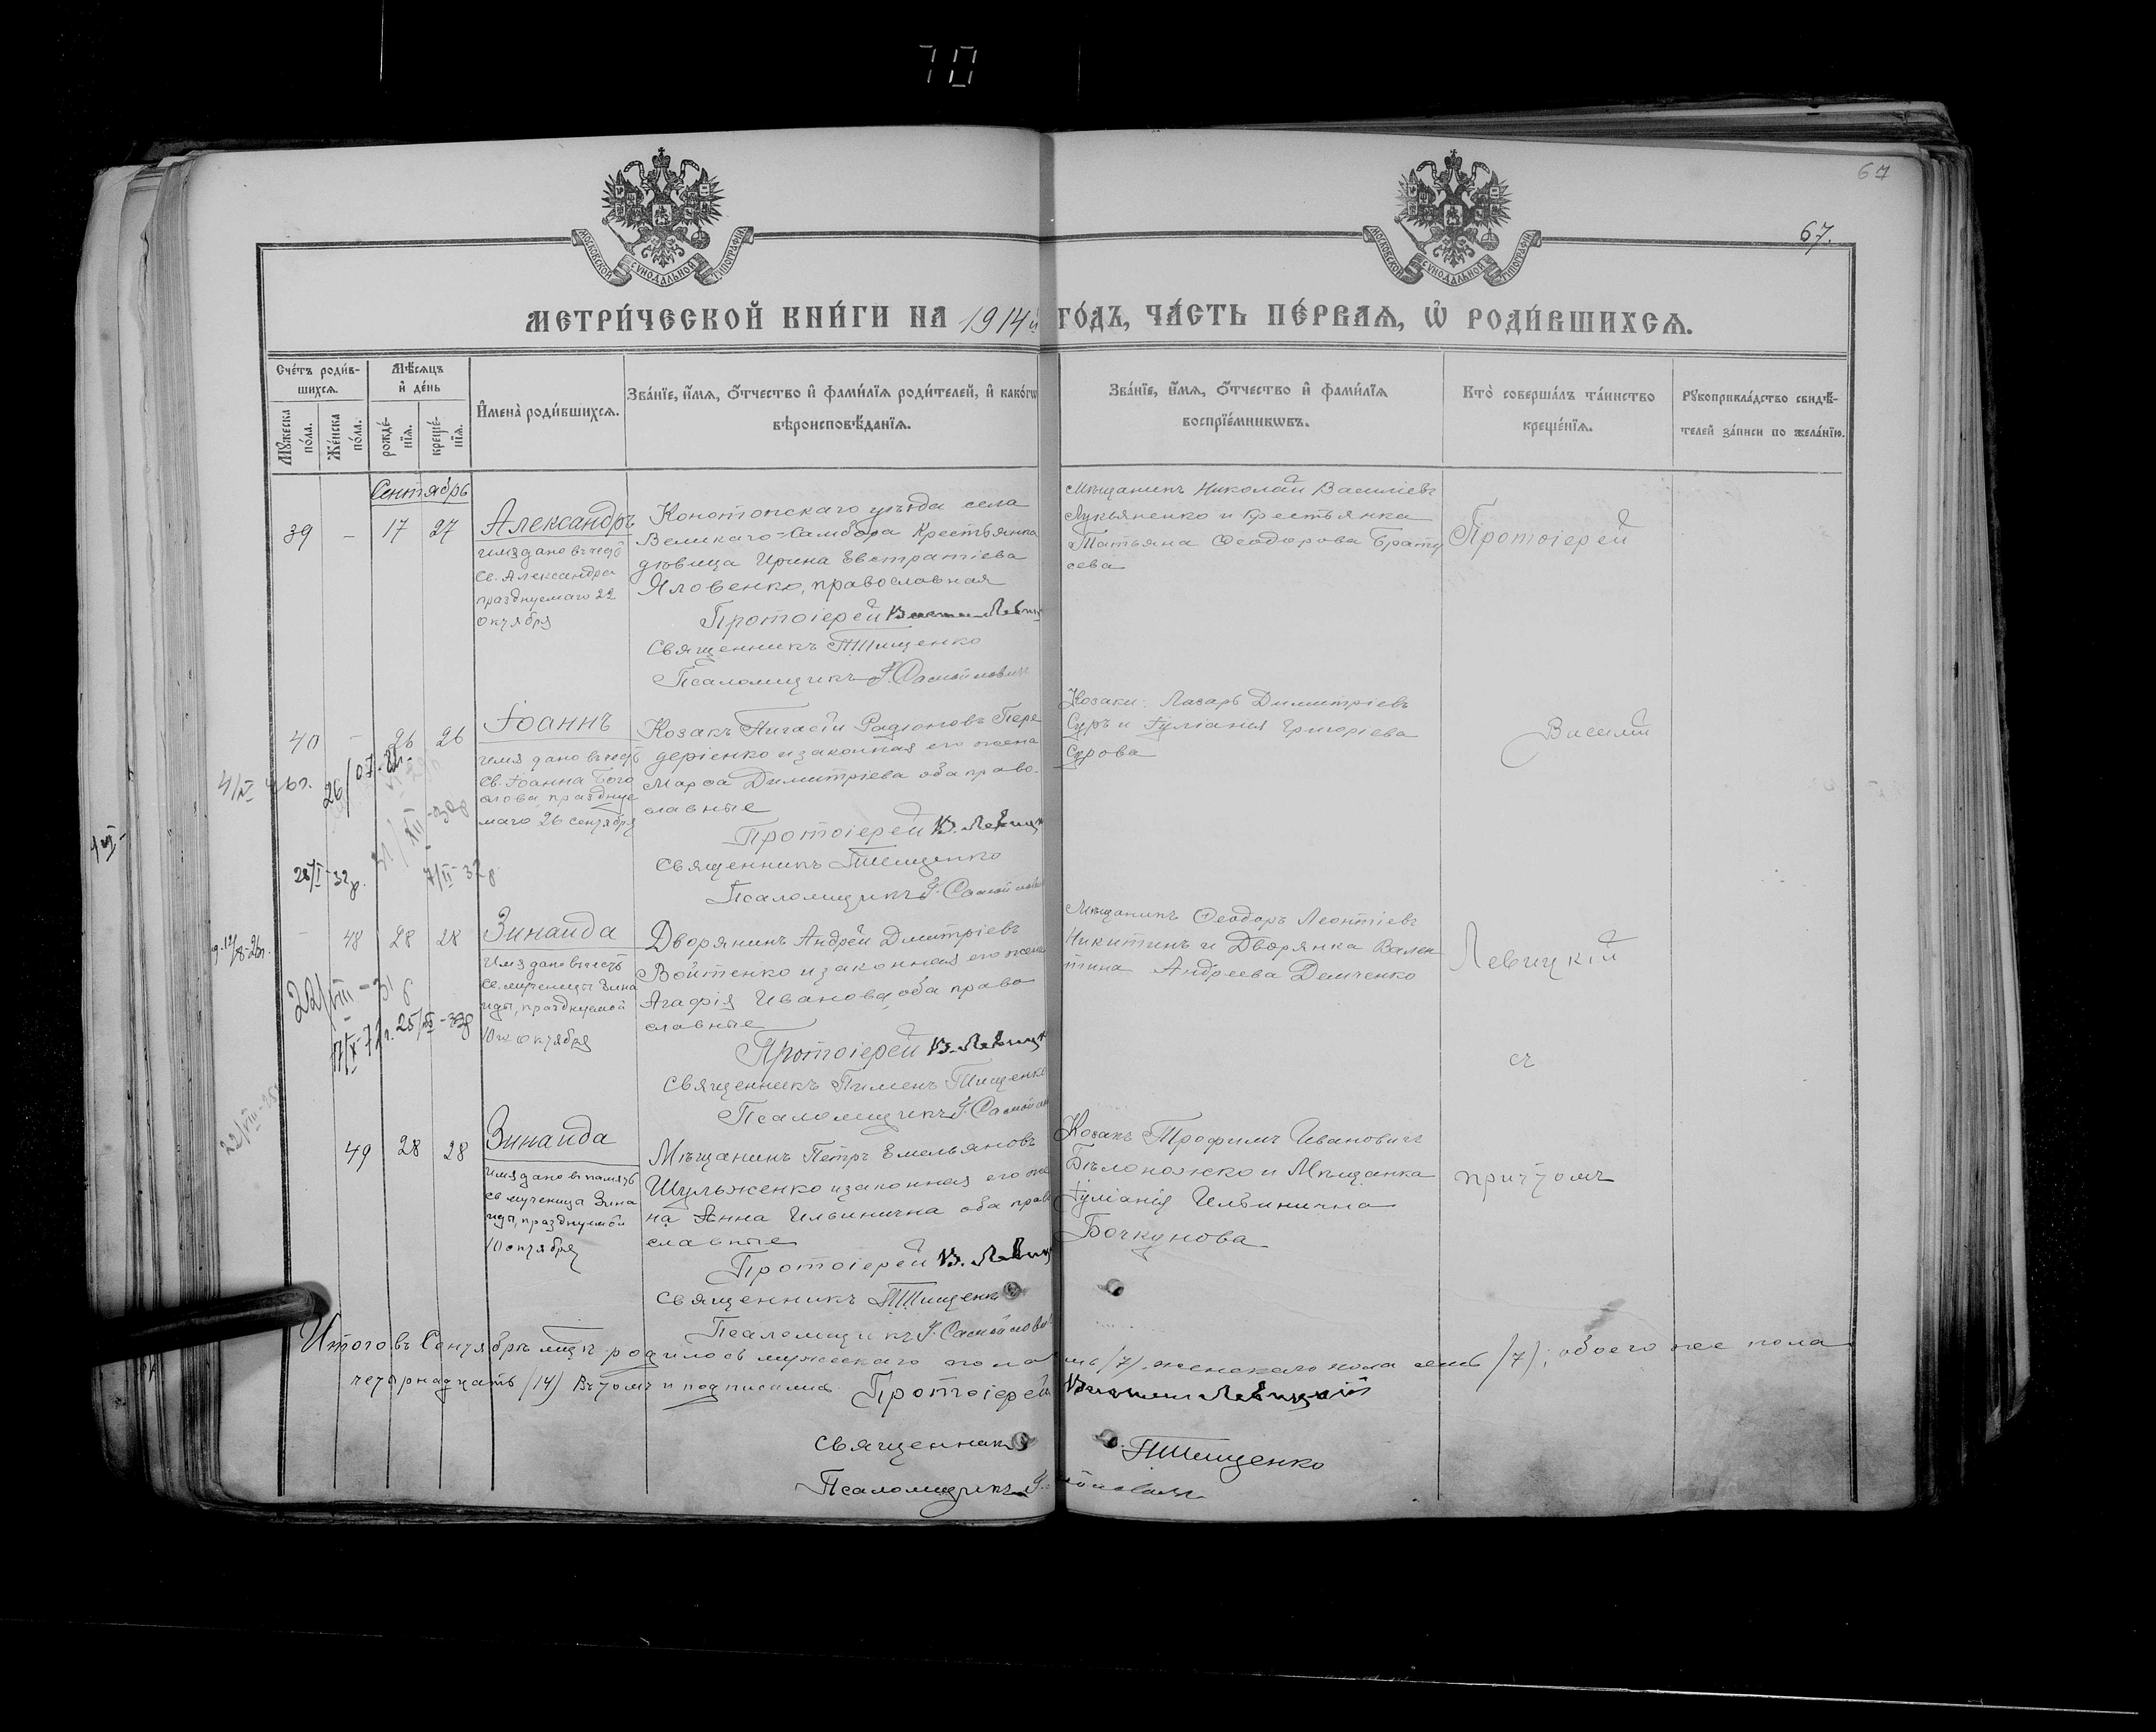 70
67
67.
МОСКОВСКОЙ СѴНОДАЛЬНОЙ ТИПОГРАФІИ
МОСКОВСКОЙ СѴНОДАЛЬНОЙ ТИПОГРАФІИ
МЕТРИ́ЧЕСКОЙ КНИ́ГИ НА 1914й ГО́ДЪ, ЧА́СТЬ ПЕ́РВАѦ, Ѡ҆ РОДИ́ВШИХСѦ.
Сче́тъ роди́в-
шихсѧ.
Мѣ́сѧцъ
и҆ де́нь
Мꙋ́жеска
по́ла.
Же́нска
по́ла.
рожде́-
нїѧ.
креще́-
нїѧ.
И҆мена̀ роди́вшихсѧ.
Зва́нїе, и҆́мѧ, ѻ҆́тчество и҆ фами́лїѧ роди́телей, и҆ како́гѡ
вѣроисповѣ́данїѧ.
Зва́нїе, и҆́мѧ, ѻ҆́тчество и҆ фами́лїѧ
воспрїе́мникѡвъ.
Кто̀ соверша́лъ та́инство
креще́нїѧ.
Рꙋкоприкла́дство свидѣ́-
телей за́писи по жела́нїю.
Сентябрь
39 – 17 27
Александръ
имя дано въ честь
Св. Александра
празднуемаго 22
октября
Конотопскаго уѣзда села
Великаго-Самбора Крестьянка
дѣвица Ирина Евстратіева
Яловенко, православная
Протоіерей
Священникъ П Тищенко
Псаломщикъ
Мѣщанинъ Николай Василіевъ
Лукьяненко и крестьянка
Татьяна Ѳеодорова Брату
сева
Протоіерей
40 – 26 26
Іоаннъ
имя дано въ честь
Св. Іоанна Бого
слова, праздне
маго 26 сентября
Козакъ Пигасій Родіоновъ Пере
деріенко и законная его жена
Марѳа Димитріева оба право-
славные
Протоіерей В. Левиц
Священникъ П Тищенко
Псаломщикъ
Козаки: Лазарь Димитріевъ
Суръ и Іуліанія Григоріева
Сурова
Василій
28/I-32 р.
7/II-32 р.
– 48 28 28
Зинаида
Имя дано въ честь
св. мученицы Зина
иды, празднуемой
10го октября
Дворянинъ Андрей Димитріевъ
Войтенко и законная его жена
Агафія Иванова, оба право
славные
Протоіерей В. Левицк
Священникъ Пименъ Тищенко
Псаломщикъ
Мѣщанинъ Ѳеодоръ Леонтіевъ
Никитинъ и Дворянка Вален
тина Андреева Демченко
Левицкій
съ
49 28 28
Зинаида
имя дано въ память
св мученицы Зина
иды, празднуемой
10 октября
Мѣщанинъ Петръ Емельяновъ
Шульженко и законная его же
на Анна Ильинична оба прав
славные
Протоіерей В. Левиц
Священникъ П Тищенк
Псаломщикъ
Козакъ Трофимъ Ивановичъ
Бѣлоножко и Мѣщанка
Іуліанія Ильинична
Бочкунова
причтомъ
Итого въ Сентябрѣ мцѣ родилось мужескаго пола мь /7/, женскаго пола семь /7/; обоего же пола
четырнадцать /14/ Въ томъ и подписались: Протоіерей Василій Левицкій
Священник П Тищенко
Псаломщикъ